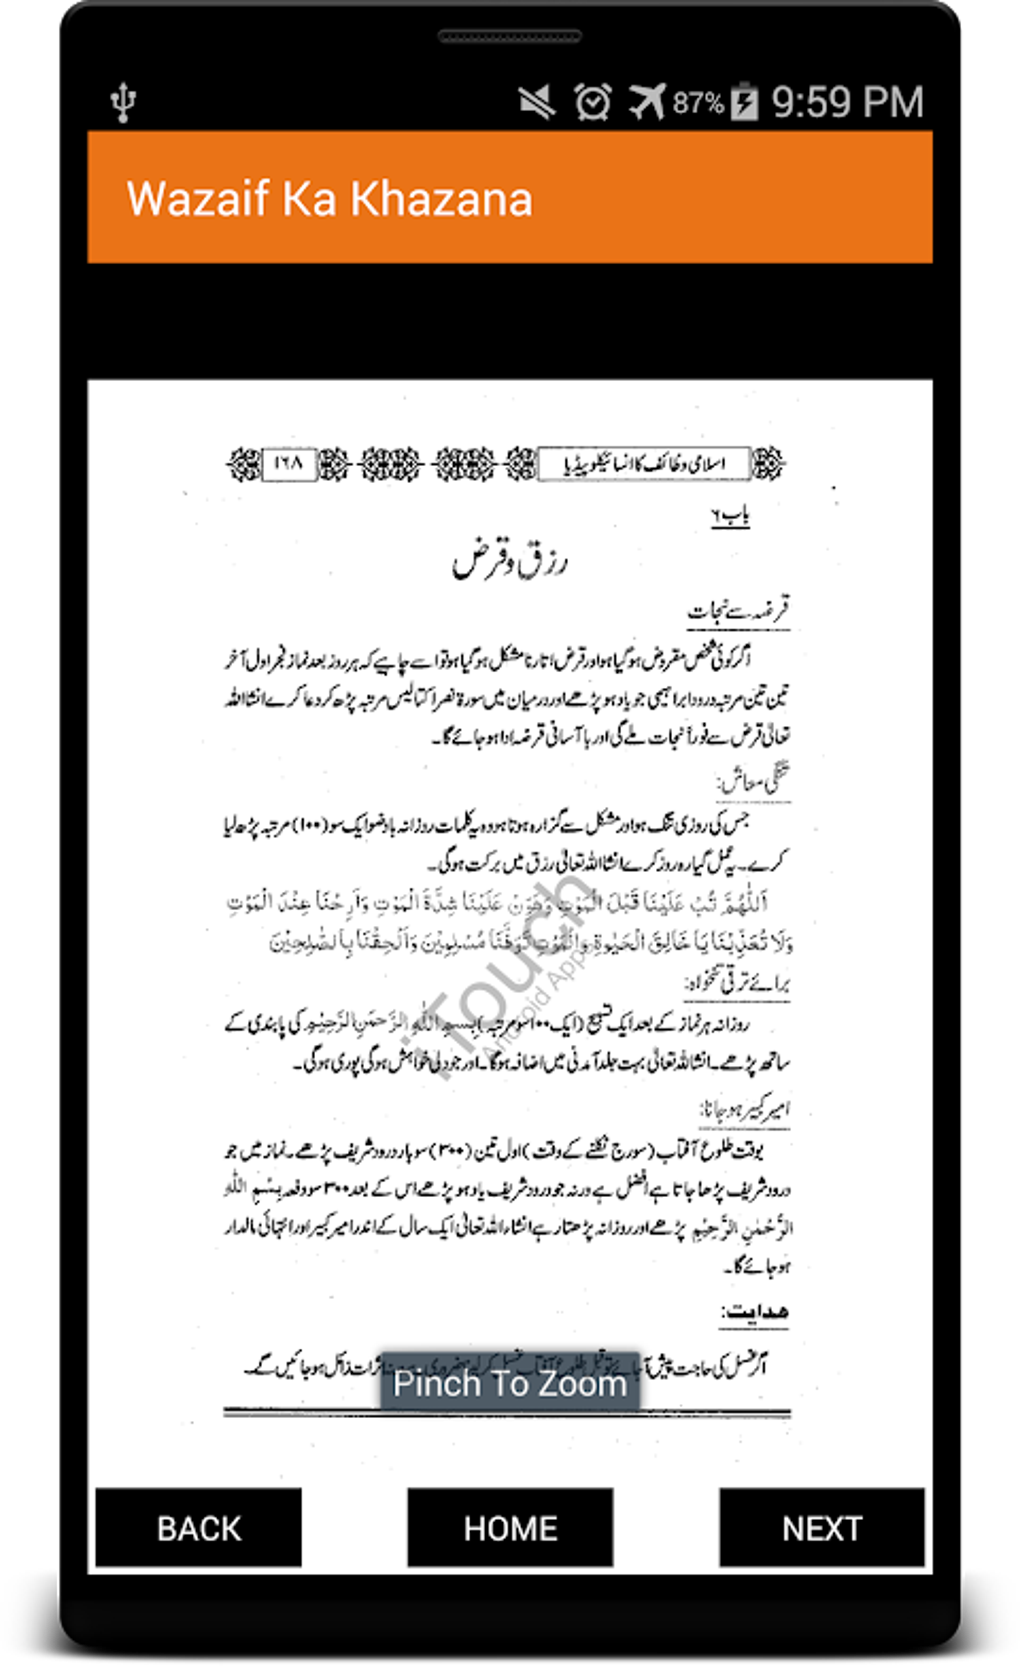 87% 9:59 PM
Wazaif Ka Khazana
۱۶۸ اسلامی وظائف کا انسائیکلوپیڈیا
باب ۶
رزق و قرض
قرضہ سے نجات
اگر کوئی شخص مقروض ہو گیا ہو اور قرض اتارنا مشکل ہو گیا ہو تو اسے چاہیے کہ ہر روز بعد نماز فجر اول آخر
تین تین مرتبہ درود ابراہیمی جو یاد ہو پڑھے اور درمیان میں سورۃ نصر اکتالیس مرتبہ پڑھ کر دعا کرے انشا اللہ
تعالیٰ قرض سے فوراً نجات ملے گی اور با آسانی قرضہ ادا ہو جائے گا۔
تنگی معاش:
جس کی روزی تنگ ہو اور مشکل سے گزارہ ہوتا ہو وہ یہ کلمات روزانہ باوضو ایک سو (۱۰۰) مرتبہ پڑھ لیا
کرے۔ یہ عمل گیارہ روز کرے انشا اللہ تعالیٰ رزق میں برکت ہوگی۔
اَللّٰهُمَّ تُبْ عَلَيْنَا قَبْلَ الْمَوْتِ وَهَوِّنْ عَلَيْنَا شِدَّةَ الْمَوْتِ وَاَرِحْنَا عِنْدَ الْمَوْتِ
وَلَا تُعَذِّبْنَا يَا خَالِقَ الْحَيٰوةِ وَالْمَوْتِ تَوَفَّنَا مُسْلِمِيْنَ وَاَلْحِقْنَا بِالصّٰلِحِيْنَ
برائے ترقی تنخواہ:
روزانہ ہر نماز کے بعد ایک تسبیح (ایک ۱۰۰ سو مرتبہ) بسم اللّٰہ الرَّحمٰنِ الرَّحِیْمِ کی پابندی کے
ساتھ پڑھے۔ انشا اللہ تعالیٰ بہت جلد آمدنی میں اضافہ ہوگا۔ اور جو دلی خواہش ہوگی پوری ہوگی۔
امیر کبیر ہو جانا:
بوقت طلوع آفتاب (سورج نکلنے کے وقت) اول تین (۳۰۰) سو بار درود شریف پڑھے۔ نماز میں جو
درود شریف پڑھا جاتا ہے افضل ہے ورنہ جو درود شریف یاد ہو پڑھے اس کے بعد ۳۰۰ سو دفعہ بِسْمِ اللّٰهِ
الرَّحْمٰنِ الرَّحِيْمِ پڑھے اور روزانہ پڑھتا رہے انشاء اللہ تعالیٰ ایک سال کے اندر امیر کبیر اور انتہائی مالدار
ہو جائے گا۔
ھدایت:
اگر غسل کی حاجت پیش آ جائے تو قبل طلوع آفتاب غسل کر لینا ضروری اثرات ذائل ہو جائیں گے۔
iTouch
Android Apps
Pinch To Zoom
BACK HOME NEXT